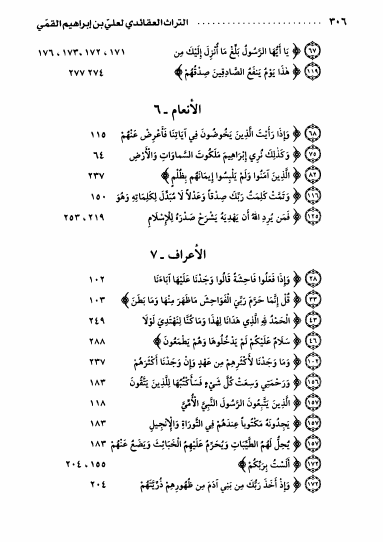 ٣٠٦ التراث العقائدي لعليّ بن إبراهيم القمّي
﴿٦٧﴾ ﴿ يَا أَيُّهَا الرَّسُولُ بَلِّغْ مَا أُنْزِلَ إِلَيْكَ مِن ١٧١، ١٧٢، ١٧٣، ١٧٦
﴿١١٩﴾ ﴿ هَذَا يَوْمُ يَنفَعُ الصَّادِقِينَ صِدْقُهُمْ ﴾ ٢٧٤ ٢٧٧
الأنعام - ٦
﴿٦٨﴾ ﴿ وَإِذَا رَأَيْتَ الَّذِينَ يَخُوضُونَ فِي آيَاتِنَا فَأَعْرِضْ عَنْهُمْ ١١٥
﴿٧٥﴾ ﴿ وَكَذَلِكَ نُرِي إِبْرَاهِيمَ مَلَكُوتَ السَّمَاوَاتِ وَالْأَرْضِ ٦٤
﴿٨٢﴾ ﴿ الَّذِينَ آمَنُوا وَلَمْ يَلْبِسُوا إِيمَانَهُم بِظُلْمٍ ﴾ ٢٣٧
﴿١١٦﴾ ﴿ وَتَمَّتْ كَلِمَتُ رَبِّكَ صِدْقاً وَعَدْلاً لَا مُبَدِّلَ لِكَلِمَاتِهِ وَهُوَ ١٥٠
﴿١٢٥﴾ ﴿ فَمَن يُرِدِ اللهُ أَن يَهْدِيَهُ يَشْرَحْ صَدْرَهُ لِلْإِسْلَامِ ٢١٩، ٢٥٣
الأعراف - ٧
﴿٢٨﴾ ﴿ وَإِذَا فَعَلُوا فَاحِشَةً قَالُوا وَجَدْنَا عَلَيْهَا آبَاءَنَا ١٠٢
﴿٣٣﴾ ﴿ قُلْ إِنَّمَا حَرَّمَ رَبِّيَ الْفَوَاحِشَ مَا ظَهَرَ مِنْهَا وَمَا بَطَنَ ﴾ ١٠٣
﴿٤٣﴾ ﴿ الْحَمْدُ لِلهِ الَّذِي هَدَانَا لِهَذَا وَمَا كُنَّا لِنَهْتَدِيَ لَوْلَا ٢٤٩
﴿٤٦﴾ ﴿ سَلَامٌ عَلَيْكُمْ لَمْ يَدْخُلُوهَا وَهُمْ يَطْمَعُونَ ﴾ ٢٨٨
﴿١٠٢﴾ ﴿ وَمَا وَجَدْنَا لِأَكْثَرِهِم مِنْ عَهْدٍ وَإِنْ وَجَدْنَا أَكْثَرَهُمْ ٢٣٧
﴿١٥٦﴾ ﴿ وَرَحْمَتِي وَسِعَتْ كُلَّ شَيْءٍ فَسَأَكْتُبُهَا لِلَّذِينَ يَتَّقُونَ ١٨٣
﴿١٥٧﴾ ﴿ الَّذِينَ يَتَّبِعُونَ الرَّسُولَ النَّبِيَّ الْأُمِّيَّ ١١٨
﴿١٥٧﴾ ﴿ يَجِدُونَهُ مَكْتُوباً عِندَهُمْ فِي التَّوْرَاةِ وَالْإِنْجِيلِ ١٨٣
﴿١٥٧﴾ ﴿ يُحِلُّ لَهُمُ الطَّيِّبَاتِ وَيُحَرِّمُ عَلَيْهِمُ الْخَبَائِثَ وَيَضَعُ عَنْهُمْ ١٨٣
﴿١٧٢﴾ ﴿ أَلَسْتُ بِرَبِّكُمْ ﴾ ١٥٥، ٢٠٤
﴿١٧٢﴾ ﴿ وَإِذْ أَخَذَ رَبُّكَ مِن بَنِي آدَمَ مِن ظُهُورِهِمْ ذُرِّيَّتَهُمْ ٢٠٤